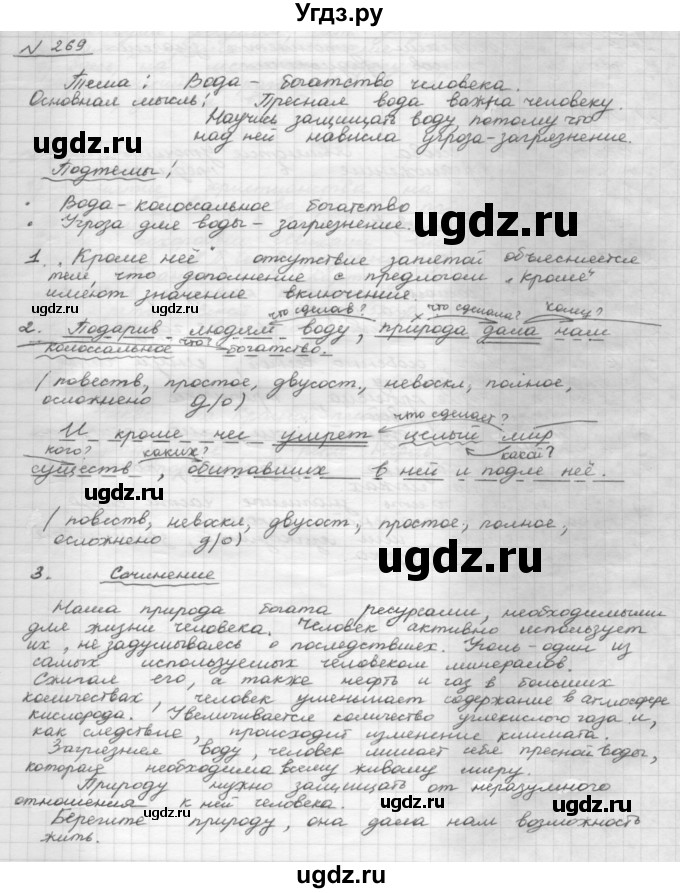 Угдз.ру
N 269
Тема: Вода - богатство человека.
Основная мысль: Пресная вода важна человеку.
Научись защищать воду, потому что
над ней нависла угроза-загрязнение.
ugdz.ru
Подтемы:
• Вода-колоссальное богатство
• Угроза для воды - загрязнение.
ugdz.ru
1. „Кроме неё" отсутствие запятой объясняется
тем, что дополнение с предлогом „кроме"
имеют значение включение.
ugdz.ru
что сделав? что сделала? кому?
2. Подарив людям воду, природа дала нам
что?
колоссальное богатство.
ugdz.ru
(повеств, простое, двусост., невоскл, полное,
осложнено д/о)
что сделает?
И кроме нее умрет целый мир
кого? каких? какой?
существ, обитавших в ней и подле неё.
ugdz.ru
(повеств, невоскл, двусост, простое, полное,
осложнено д/о)
ugdz.ru
3. Сочинение
Наша природа богата ресурсами, необходимыми
для жизни человека. Человек активно использует
их, не задумываясь о последствиях. Уголь - один из
самых используемых человеком минералов.
ugdz.ru
Сжигая его, а также нефть и газ в больших
количествах, человек уменьшает содержание в атмосфере
кислорода. Увеличивается количество углекислого газа и,
как следствие, происходит изменение климата.
ugdz.ru
Загрязняя воду, человек лишает себя пресной воды,
которая необходима всему живому миру.
Природу нужно защищать от неразумного
отношения к ней человека.
ugdz.ru
Берегите природу, она дала нам возможность
жить.
ugdz.ru